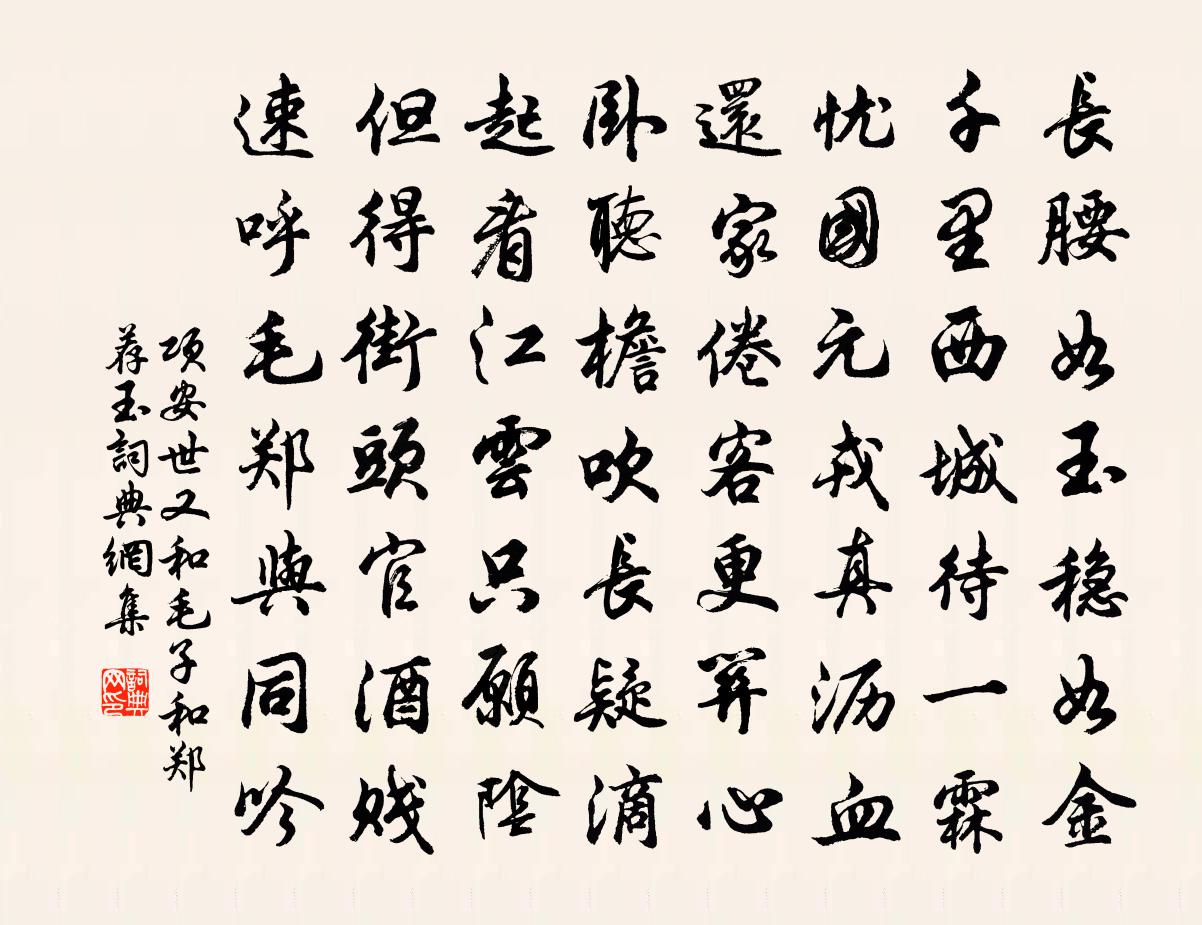 長腰如玉穏如金
千里西城待一霖
忧國元戎真沥血
還家倦客更笄心
卧聽檐吹長疑滴
起看江雲只願陰
但得街頭官酒贱
速呼毛郑與同吟
项安世又和毛子和郑
荐玉詞典網集
詞典网印